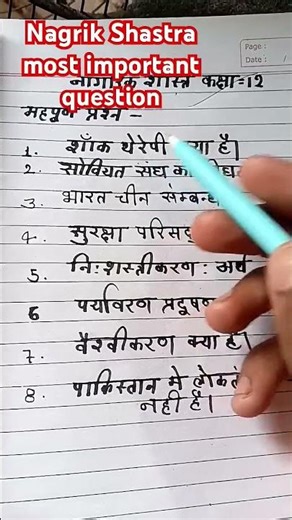 Nagrik Shastra
most important
question
Page :
Date : /
नागरिक शास्त्र कक्षा=12
महपूण प्रश्न –
1. शॉक थेरेपी क्या है।
2. सोवियत संघ का
3. भारत चीन सम्बन्ध
4. सुरक्षा परिसद
5. निःशस्त्रीकरण : अर्थ
6 पर्यावरण प्रदूषण
7. वैश्वीकरण क्या है।
8. पाकिस्तान मे
नही है।